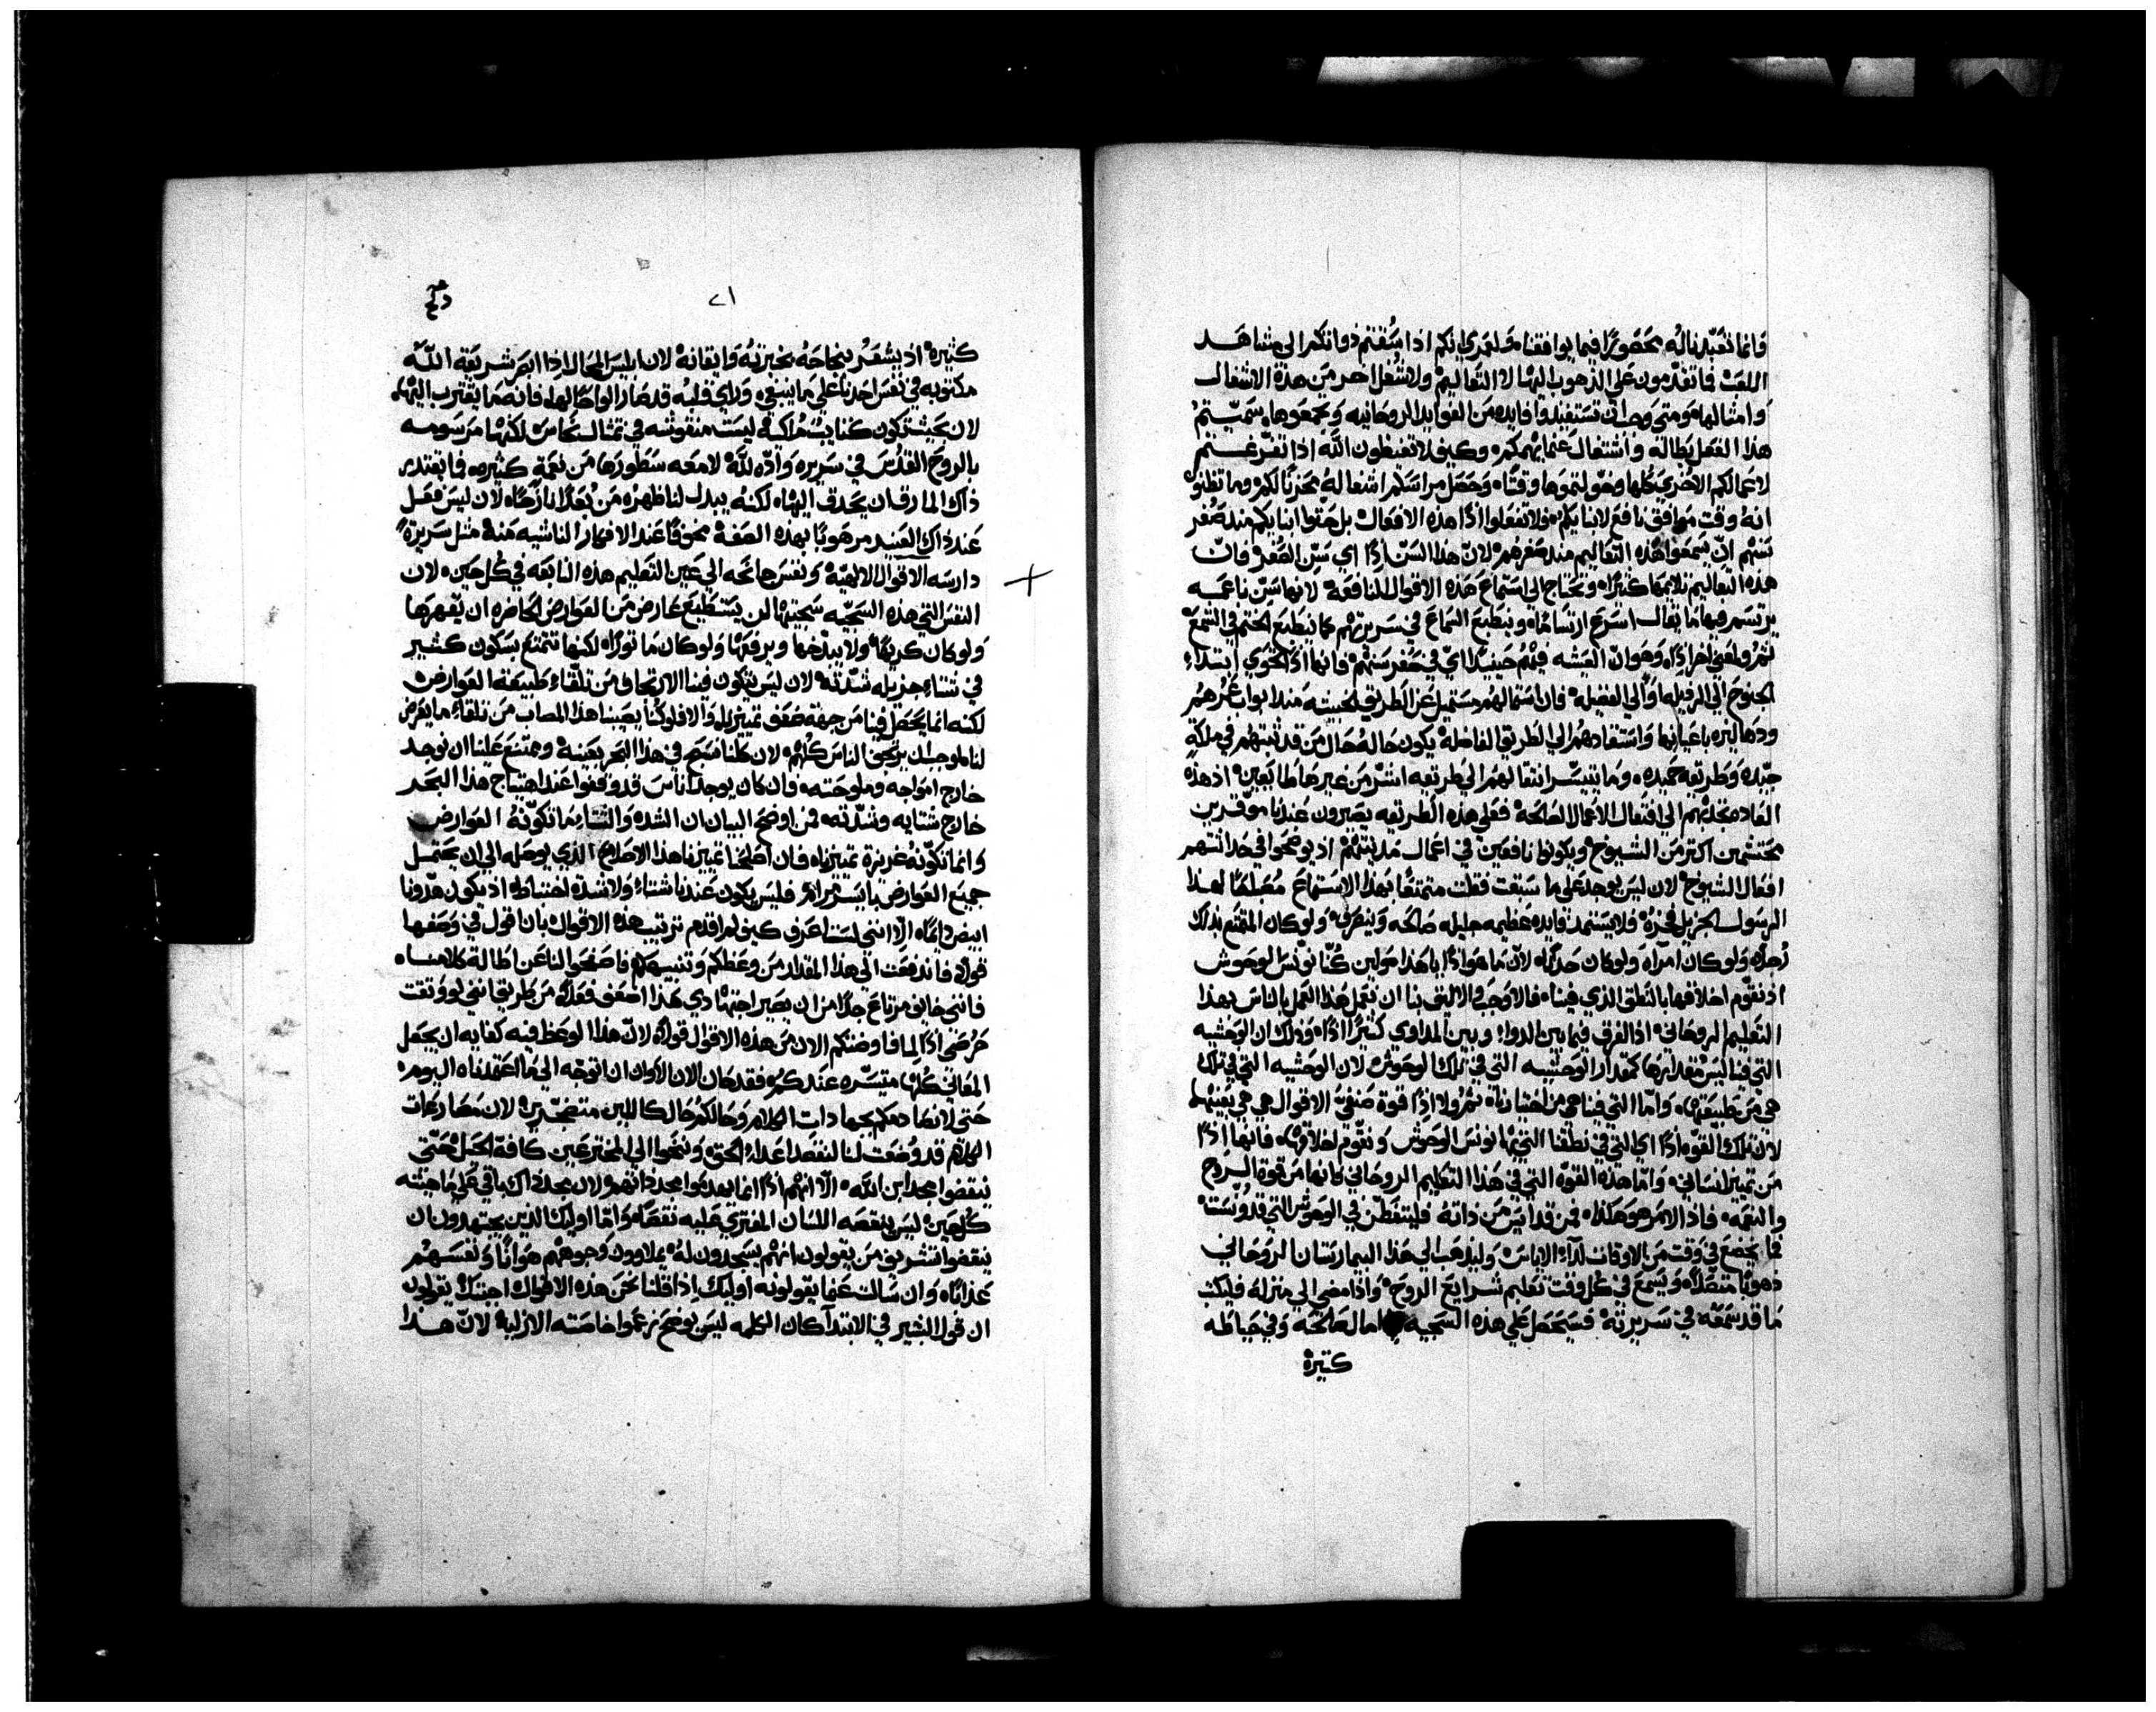 وانما تعبدنا له محصورًا فيما يوافقنا ولعمري انكم اذا سُقتم ذواتكم الى مشاهد
اللعب فما تقدّمون على الذهوب اليها لا التعاليم ولا شُغل اخر من هذه الاشغال
وامثالها ومتى وجب ان تستفيدوا فايده من الفوايد الروحانيه وتجمعوها سَمّيتمُ
هذا الفعل بطاله واشتغال عما يهمكم وكيف لا تغيظون الله اذا تفرّغتم
لاعمالكم الاخرى كلها وخولتموها وقتًا وحصل مراسكم اشغاله محزنًا لكم وما تظنوا
انه وقت موافق نافع لابنايكم ولا تفعلوا اذًا هذه الافعال بل حثوا ابنايكم منذ صُغر
سنهم ان يسمعوا هذه التعاليم منذ صغرهم لانّ هذا السنّ اذًا اي سَنّ الصُغر فانّ
هذه التعاليم تلايمها كثيرًا وتحتاج الى استماع هذه الاقوال النافعة لانها سنّ ناعمه
يرتسم فيها ما يقال اسرع ارتسامًا وينطبع السماع في سريرتهم كما ينطبع الختم في الشمع
ثم ولمعنى اخر اذًا وهو انّ العيشه فيهم حينيذ اي في صُغر سنهم فانها اذ تحتوي ابتداء
الجنوح الى الرذيله والى الفضيله فان استمالهم مستميل عن الطريق الخبيثه منذ ابواب عُمرهم
ودهاليزه باعيانها واستقادهم الى الطريق الفاضلة يكون حاله حال من قد ثبتهم في ملكةٍ
جيّده وطريقه حميده وما يتيسّر انتقالهم الى طريقه اشرّ من غيرها طايعين اذ هذه
العاده تجذبهم الى افتعال الاعمال الصالحة فعلى هذه الطريقه يصيرون عندنا موقرين
محتشمين اكثر من الشيوخ ويكونوا نافعين في اعمال مدينتهم اذ يوضحوا في حداثتهم
افعال الشيوخ لان ليس يوجد على ما سبقت فقلت متمتعًا بهذا الاستماع مُصطحبًا لهذا
الرسول الجزيل فخره فلا يستمد فايده عظيمه جليله صالحه وينصرف ولو كان المقتنع بذلك
رُجلًا ولو كان امرآه ولو كان حدثًا لانّ ما هو اذًا يا هذا حولين كنّا نونس الوحوش
اذ نقوّم اخلاقها بالنطق الذي فينا فالاوجب والاليق بنا ان نعمل هذا العمل بالناس بهذا
التعليم الروحاني اذ الفرق فيما بين الدواء وبين المداوي كثيرًا اذًا وذلك ان الوحشيه
التي فينا ليس مقدارها كمقدار الوحشيه التي في تلك الوحوش لان الوحشيه التي في تلك
هي من طبيعتها وامّا التي فينا هي من اختيارنا ثم ولا اذًا قوة صنفيّ الاقوال هي هي بعينها
لانّ تلك القوه اذًا اي التي في نطقنا التي بها نونس الوحوش ونقوّم اخلاقها فانها اذًا
من تمييز انساني وامّا هذه القوّه التي في هذا التعليم الروحاني فانها من قوة الروح
والنعمه فاذ الامر هو هكذا فمن قد ايس من ذاته فليتفطّن في الوحوش التي قد ونستاه
فما يخضع في وقت من الاوقات لداء الاياس وليذهب الى هذا البيمارستان الروحاني
دهوبًا متصلًا ويسمع في كل وقت تعليم شرايع الروح واذا مضى الى منزله فليكتب
ما قد سمعه في سريرته فسيحصل على هذه السجيه امال صالحه وفي حياطه
كثيرة
٢١
كثيرة اذ يشعُر بنجاحهُ بخبرتهُ وايقانهُ لان ابليس المحال اذا ابصر شريعه الله
مكتوبه في نفس احدنا على ما ينبغي وراى قلبهُ قد صار الواحًا لها فانه ما يقترب اليها
لان بحيث تكون كتابت مُلكيه ليست منقوشه في تمثال نحاس لكنها مرسومه
بالروح القدُس في سريره وادّه لله لامعه سطورها من نعمة كثيره فما يقتدر
ذاك المارق ان يحدق اليها لكنهُ يبدل لنا ظهره من بُعدٍ نازحًا لان ليس فعل
عند ذاك العنيد مرهوبًا بهذه الصفة مخوفًا عند الافكار الناشيه منهُ مثل سريرةٍ
دارسه الاقوال الالهيّة ونفس جانحه الى عين التعليم هذه النابعه في كل حين لان
النفس التي هذه السجيّه سجيتها لن يستطيع عارض من العوارض الحاضره ان يقهرها
ولو كان كريهًا ولا يبذّخها ويرفعها ولو كان ماثورًا لكنها تتمتع بسكون كثير
في شتاءٍ جزيله شدّته لان ليس يتكون فينا الارتجاف من تلقاء طبيعة العوارض
لكنه انما يحصل فينا من جهة ضعف تمييزنا والا فلو كنا يصيبنا هذا المصاب من تلقاءِ ما يعرض
لنا لموجب ان يرتجف الناس كلهم لان كلنا نسبح في هذا البحر بعينهُ وممتنع علينا ان نوجد
خارج امواجه وملوحته فان كان يوجد اناس قد وقفوا عند اهتياج هذا البحر
خارج شتايه وشدّته فمن اوضح البيان ان الشده والشتا ما تكوّنهُ العوارض
وانما تكوّنهُ غريزة تمييزنا فان اصلحنا تمييزنا هذا الاصلاح الذي يوصله الى ان يحتمل
جميع العوارض بايسر مرام فليس يكون عندنا شتاءً ولا شدّة اختباط اذ يكون هدونا
ابيض دايمًا الّا انني لست اعرف كيف لم اقدم ترتيب هذه الاقوال بان اقول في وصفها
قولًا فاندفعت الى هذا المقدار من وعظكم وتنبيهكم فاصفحوا لنا عن اطالة كلامنا
فانني خايف مرتاع جدًا من ان يصير اجتهادي هذا اضعف فعلًا من طريق انني لو وثقت
حرصي اذًا لما فاوضتكم الان من هذه الاقوال قولًا لانّ هذا الوعظ فيه كفايه ان يجعل
المعاني كلها متيسّره عندكم فقد حان الان الاوان ان اتوجّه الى ما اعتمدناه اليوم
حتى لا نصادمكم بجهادات الكلام وحالكم حال كاللين متضجّرين لان مصارعات
الكلام قد وضعت لنا لنقصد اعداء الحق ونتنحوا الى المخترعين كافة الحيل حتى
ينقضوا مجد ابن الله الّا انهم اذًا انما يهدموا مجد ذاتهم لان مجد ذاك باقي على ما حيته
كل حين ليس ينقصه اللسان المفتري عليه نقصًا وامّا اوليك الذين يجتهدون ان
ينقضوا تشريف من يقولون انهم يسجدون لهُ يملاوون وجوههم هوانًا ونفسهم
عذابًا وان سالت عما يقولونه اوليك اذا قلنا نحن هذه الاقوال اجبتك يقولون
ان قول البشير في الابتدآ كان الكلمه ليس يوضح زعموا خاصته الازلية لانّ هذا